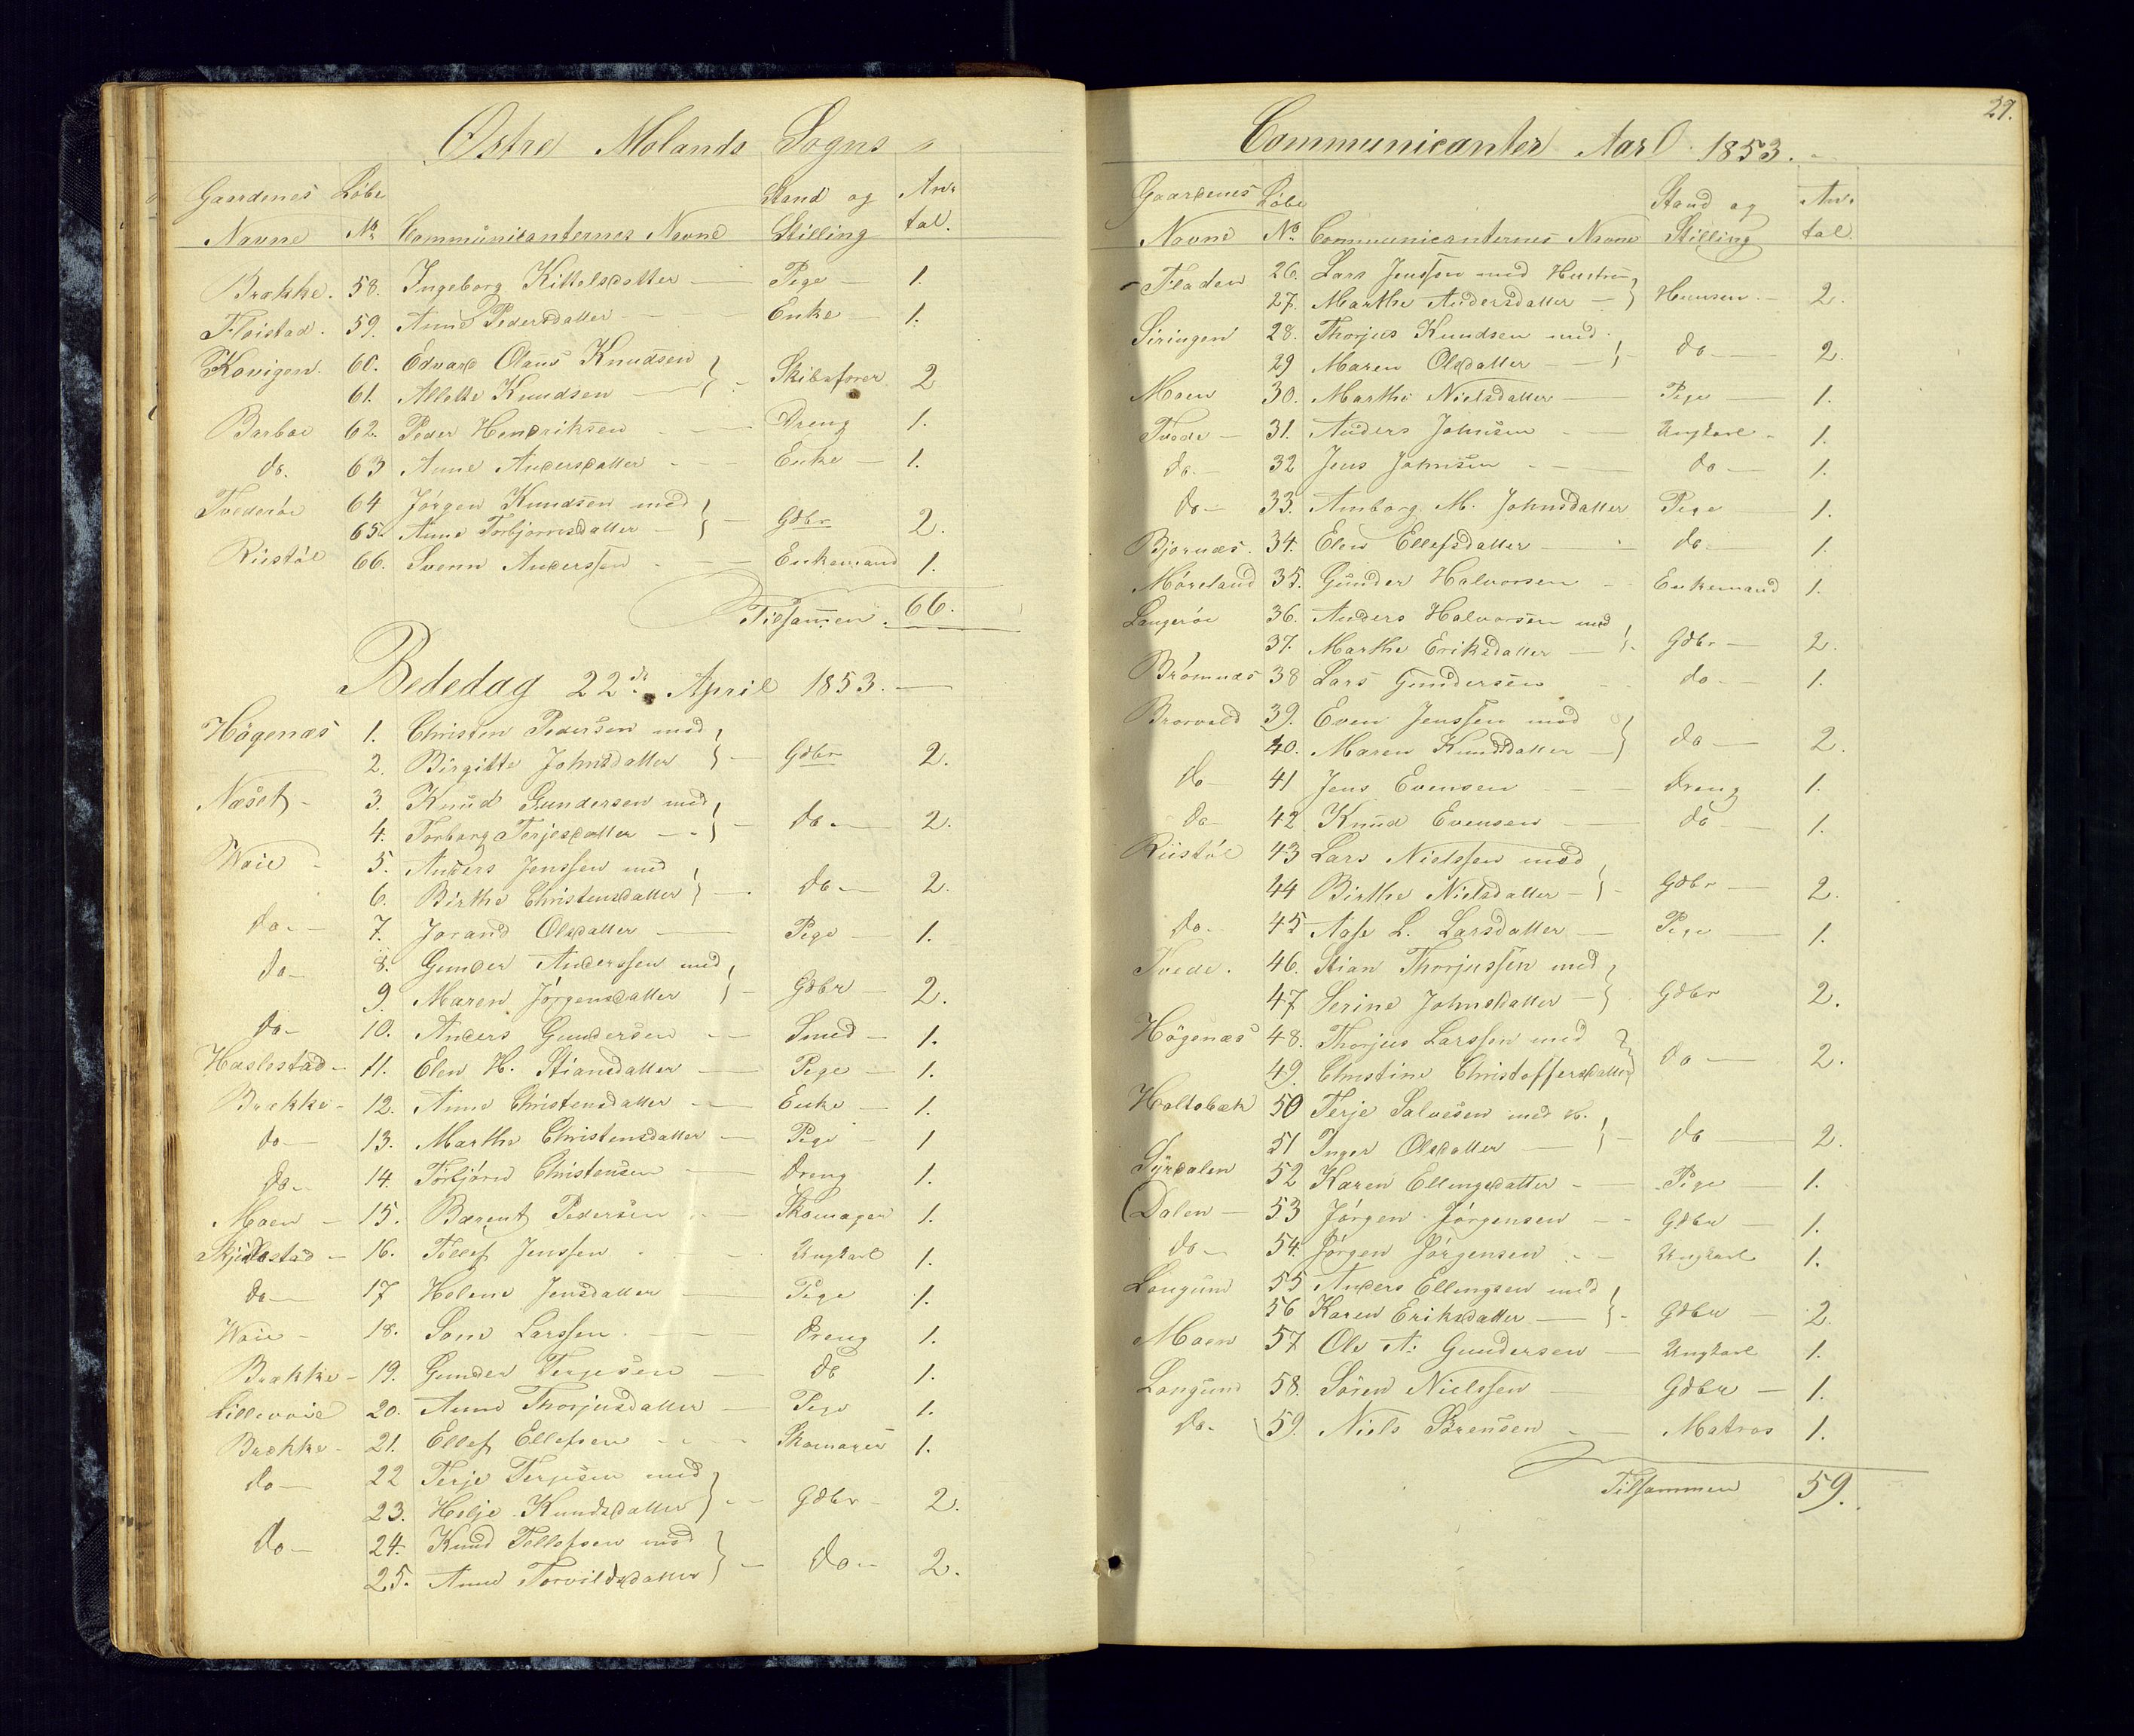 Østre Molands Sogns
Gaardenes Løbe Stand og An-
Navne No. Communicanternes Navne Stilling tal.
Brække. 58. Ingeborg Kittelsdatter Pige 1.
Fløistad. 59. Anne Pedersdatter Enke 1.
Kovigen. 60. Edvard Olaus Knudsen
61. Allette Knudsen Skibsfører 2
Barboe 62. Peder Hendriksen Dreng 1.
do. 63 Anne Andersdatter Enke 1.
Tvederøe 64 Jørgen Knudsen med
65. Anne Torbjørnsdatter Gdbr 2.
Riistøl 66. Svenn Anderssen Enkemand 1.
Tilsammen. 66.
Bededag 22de April 1853.
Högenæs 1. Christen Pedersen med
2. Birgitte Johnsdatter Gdbr 2.
Næset 3. Knud Gundersen med
4. Torborg Terjesdatter do 2.
Waie 5. Anders Jenssen med
6. Birthe Christensdatter do 2.
do 7. Jorand Olsdatter Pige 1.
do 8. Gunder Anderssen med
9. Maren Jørgensdatter Gdbr 2.
do 10. Anders Gundersen Smed 1.
Haslestad 11. Elen H. Stiansdatter Pige 1.
Brække 12. Anne Christensdatter Enke 1.
do 13. Marthe Christensdatter Pige 1
do 14. Torbjørn Christensen Dreng 1.
Moen 15. Barent Pedersen Skomager 1.
16. Tellef Jenssen Ungkarl 1.
do 17 Helene Jensdatter Pige 1.
Waie 18. Larssen Dreng 1.
Brække 19. Gunder Terjesen do 1.
Lillevaie 20. Anne Thorjusdatter Pige 1.
Brække 21. Ellef Ellefsen Skomager 1.
do 22 Terje Terjesen med
23. Helje Knudsdatter Gdbr 2.
do 24. Knud Tellefsen med
25. Anne Torvildsdatter do 2.
29.
Communicanter Aar 1853.
Gaardenes Løbe Stand og An-
Navne No. Communicanternes Navne Stilling tal.
Fladen 26. Lars Jenssen med Hustru
27. Marthe Andersdatter Huusm. 2.
Siringen 28. Thorjus Knudsen med
29 Maren Olsdatter do 2.
Moen 30. Marthe Nielsdatter Pige 1.
Tvede 31. Anders Johnsen Ungkarl 1.
do. 32 Jens Johnsen do 1.
do 33. Amborg M. Johnsdatter Pige 1.
Bjørnæs. 34. Elen Ellefsdatter do 1.
Møreland 35. Gunder Halvorsen Enkemand 1.
Langerøe 36. Anders Halvorsen med
37. Marthe Eriksdatter Gdbr 2.
Brømnæs 38 Lars Gundersen do 1.
Brorvold 39. Even Jenssen med
40. Maren Knudsdatter do 2.
do 41 Jens Evensen Dreng 1.
do 42 Knud Evensen do 1.
Riistøl 43 Lars Nielssen med
44 Birthe Nielsdatter Gdbr 2.
do. 45 Aase L. Larsdatter Pige 1.
Tvede. 46. Stian Thorjussen med
47 Serine Johnsdatter Gdbr 2.
Högenæs 48. Thorjus Larssen med
49. Christine Christoffersdatter do 2.
Holtebæk 50 Terje Salvesen med K.
51 Inger Olsdatter do 2.
Syrdalen 52 Karen Ellingsdatter Pige 1.
Dalen 53 Jørgen Jørgensen Gdbr 1.
do 54. Jørgen Jørgensen Ungkarl 1.
Longum 55 Anders Ellingsen med
56 Karen Eriksdatter Gdbr 2.
Moen 57 Ole A. Gundersen Ungkarl 1.
Longum 58. Sören Nielssen Gdbr 1.
do. 59. Niels Sørensen Matros 1.
Tilsammen 59.